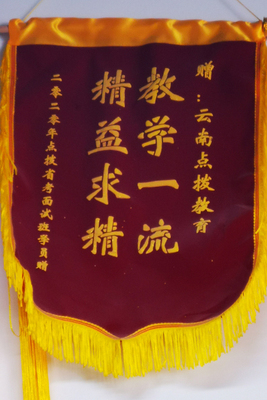 赠：云南点拨教育
教学一流
精益求精
二零二零年点拨省考面试班学员赠